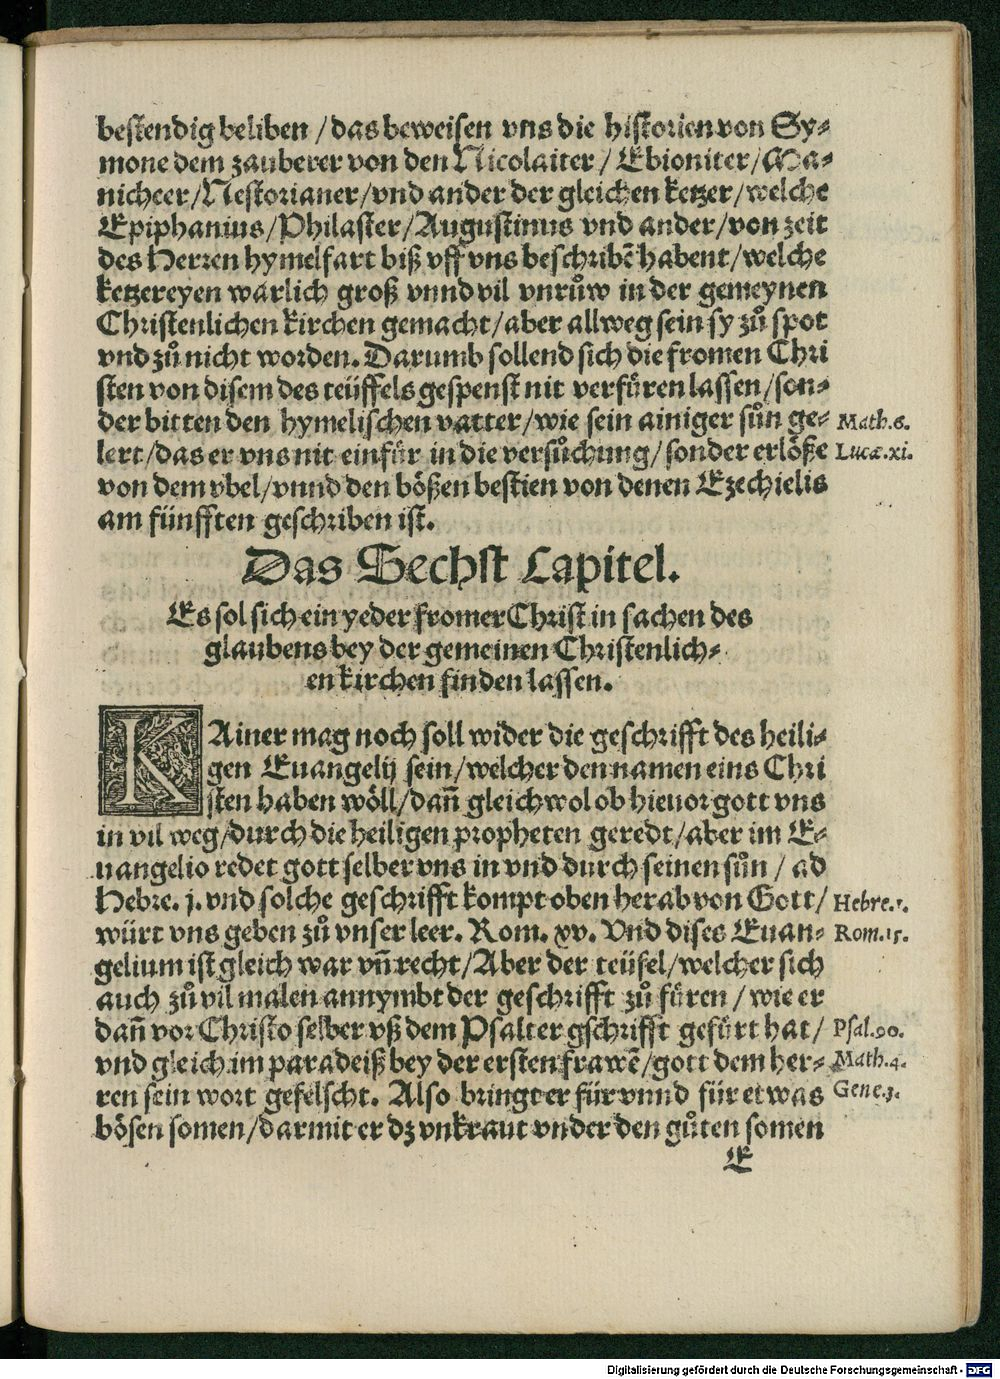 bestendig beliben / das beweisen vns die historien von Sy⸗
mone dem zauberer von den Nicolaiter / Ebioniter / Ma⸗
nicheer / Nestorianer / vnd ander der gleichen ketzer / welche
Epiphanius / Philaster / Augustinus vnd ander / von zeit
des Herren hymelfart biß vff vns beschribē habent / welche
ketzereyen warlich groß vnnd vil vnrůw in der gemeynen
Christenlichen kirchen gemacht / aber allweg sein sy zů spot
vnd zů nicht worden. Darumb sollend sich die fromen Chri
sten von disem des teüffels gespenst nit verfüren lassen / son⸗
der bitten den hymelischen vatter / wie sein ainiger sůn ge⸗ Math.6.
lert / das er vns nit einfür in die versůchung / sonder erlöße Lucæ.xi.
von dem vbel / vnnd den bößen bestien von denen Ezechielis
am fünfften geschriben ist.
Das Sechst Capitel.
Es sol sich ein yeder fromer Christ in sachen des
glaubens bey der gemeinen Christenlich⸗
en kirchen finden lassen.
KAiner mag noch soll wider die geschrifft des heili⸗
gen Euangelij sein / welcher den namen eins Chri
sten haben wöll / dañ gleichwol ob hieuor gott vns
in vil weg / durch die heiligen propheten geredt / aber im E⸗
uangelio redet gott selber vns in vnd durch seinen sůn / ad
Hebre. j. vnd solche geschrifft kompt oben herab von Gott / Hebre.1.
würt vns geben zů vnser leer. Rom. xv. Vnd dises Euan⸗ Rom.15.
gelium ist gleich war vñ recht / Aber der teüfel / welcher sich
auch zů vil malen annymbt der geschrifft zů füren / wie er
dañ vor Christo selber vß dem Psalter gschrifft gefürt hat / Psal.90.
vnd gleich im paradeiß bey der ersten frawē / gott dem her⸗ Math.4.
ren sein wort gefelscht. Also bringt er für vnnd für etwas Gene.3.
bösen somen / darmit er dz vnkraut vnder den gůten somen
E
Digitalisierung gefördert durch die Deutsche Forschungsgemeinschaft - DFG